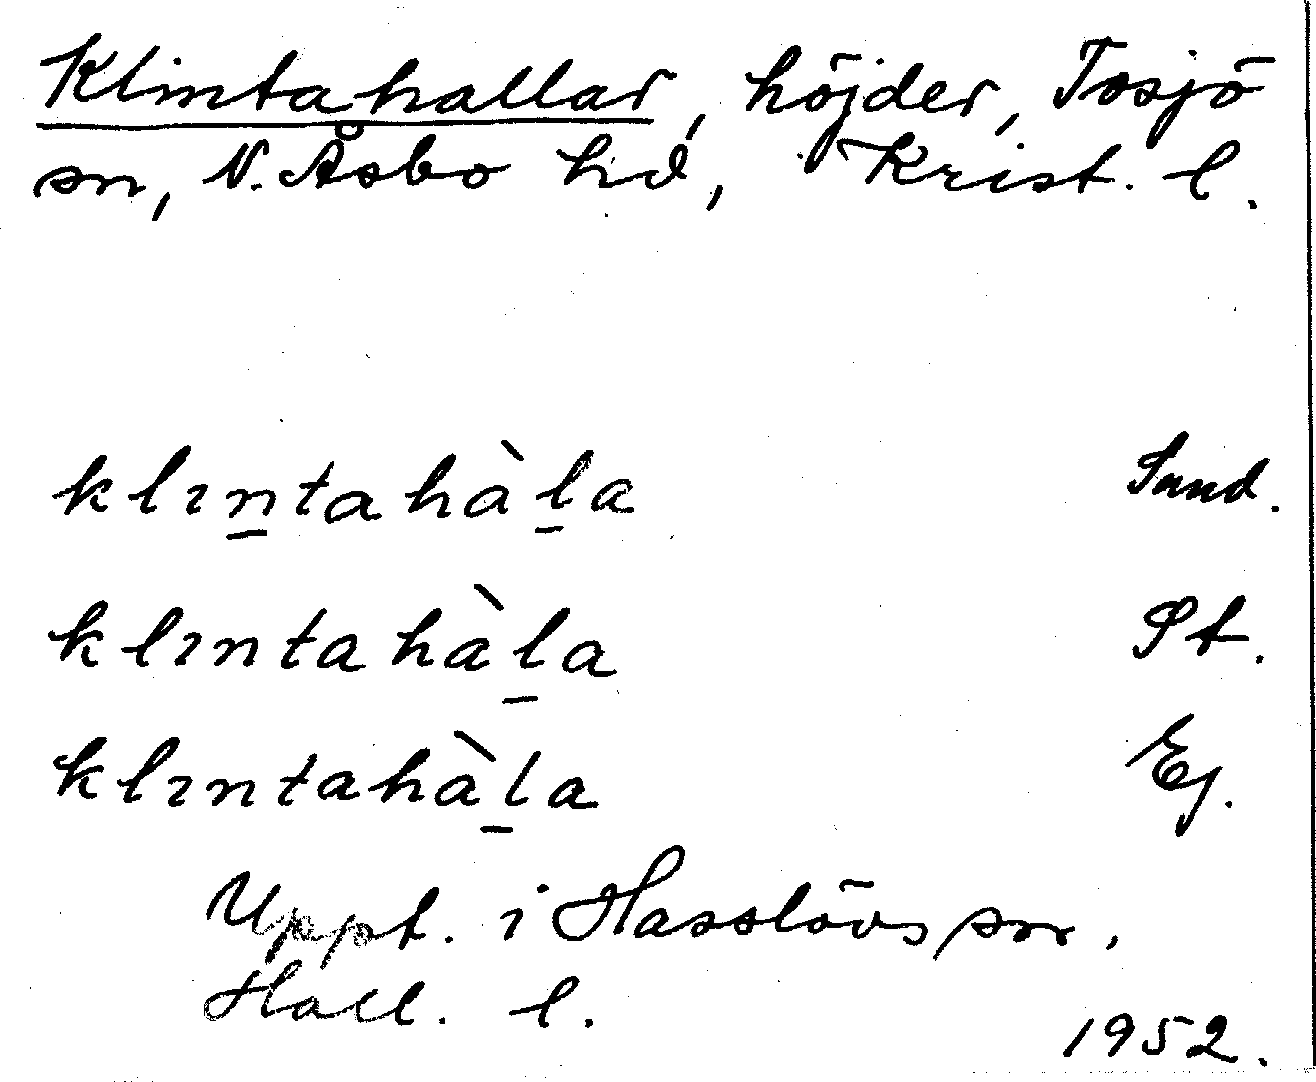 Klintahallar, höjder, Tosjö
sn, N. Åsbo hd, Krist. l.
klın̲tahàl̲a Sand.
klıntahàl̲a St.
klıntahàl̲a Ej.
Uppt. i Hasslövs sn,
Hall. l.
1952.